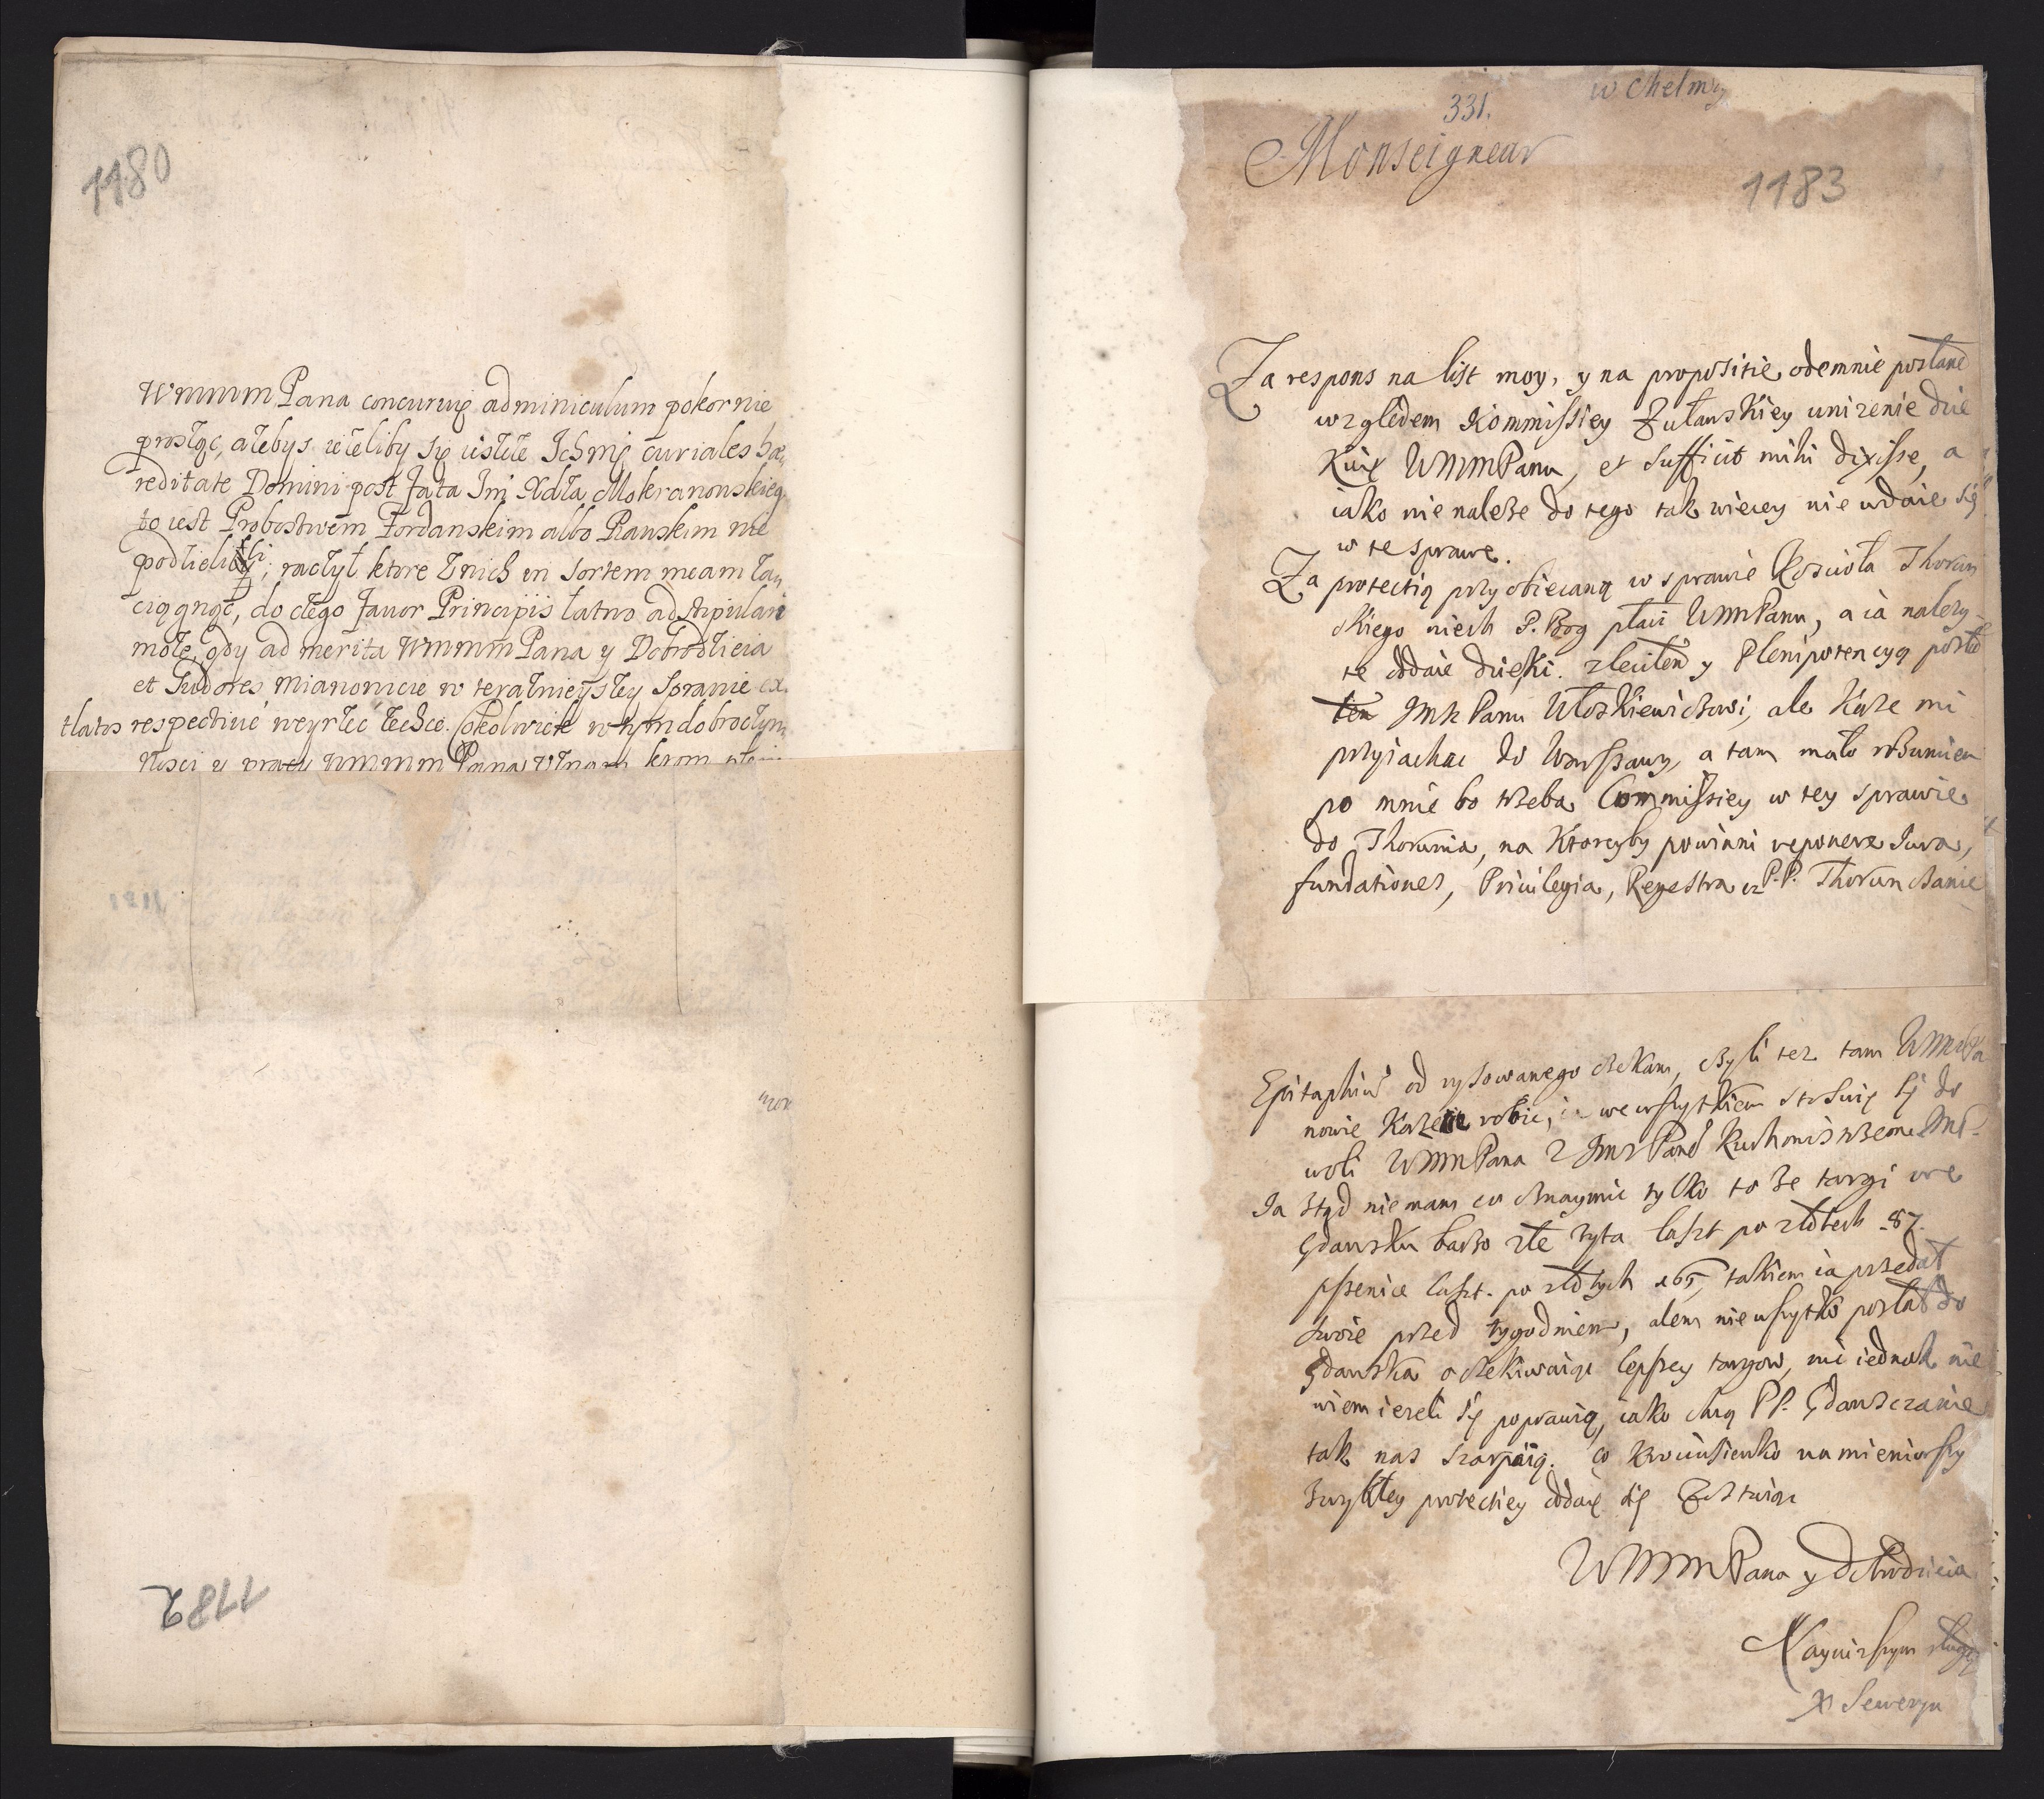 1180
WmmmPana concuruię adminiculum pokornie
prosząc, ażebys ieżeliby się ieszcze Ichmę curiales hæ
reditate Domini post fata Imi Xdza Mokranowskieg
to iest Probostwem Fordanskim albo Rawskim nie
podzielili, raczył ktore z nich in sortem meam za
ciągnąć, do czego favor Principis łatwo adstipulari
może, gdy ad merita WmmmPana y Dobrodzieia
et Sudores mianowicie w teraznieyszey Sprawie ex
tlatos respective weyrzec zechce. Cokolwiek w tym dobroczyn
ności y pracy WmmmPana
1182
331.
w Chelmzy
Monseigneur
1183
Za respons na list moy, y na propositie odemnie posłane
względem Kommissiey Żuławskiey unizenie dzie
kuię WMMPanu, et sufficit mihi dixisse, a
iako nie należe do tego tak wiecey nie wdaie się
w te sprawe.
Za protectią przyobiecaną w sprawie Kościoła Thorun
skiego niech P. Bog płaci WMMPanu, a ia należy-
te oddaie dzięki. zleciłem y Plenipotencyą posłał
Imk Panu Włoskiewiczowi, ale każe mi
przyiachac do Warszawy, a tam mało rozumiem
po mnie bo trzeba Commissiey w tey sprawie
do Thorunia, na Ktoreyby powinni reponere Jura,
fundationes, Privilegia, Regestra P.P. Thorunczanie
Epitaphium od rysowanego czekam, czyli tez tam WMMPa
nowie każecie robic, we wszytkiem stosuię się do
woli WMMPana
Ia ztąd nie mam co oznaymic tylko to że targi we
Gdansku bardzo złe żyta laszt po złotych 87.
pszenice laszt. po złotych 165, takiem ia przedał
swoie przed tygodniem, alem nie wszytko posłał do
Gdanska oczekiwaiąc lepszey targow, nie iednak nie
wiem iezeli się poprawią, iako chcą PP. Gdansczanie
tak nas szarpaią. Co krociusienko namieniwszy
zwykłey protectiey oddaię się zostaiąc
WMMPana y Dobrodzieia
Nayniszszym sługą
X Seweryn